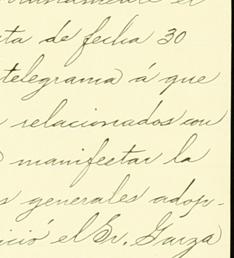 el
ta de fecha 30
telegrama á que
relacionados con
manifestar la
s generales adop-
ició el Sr. Garza